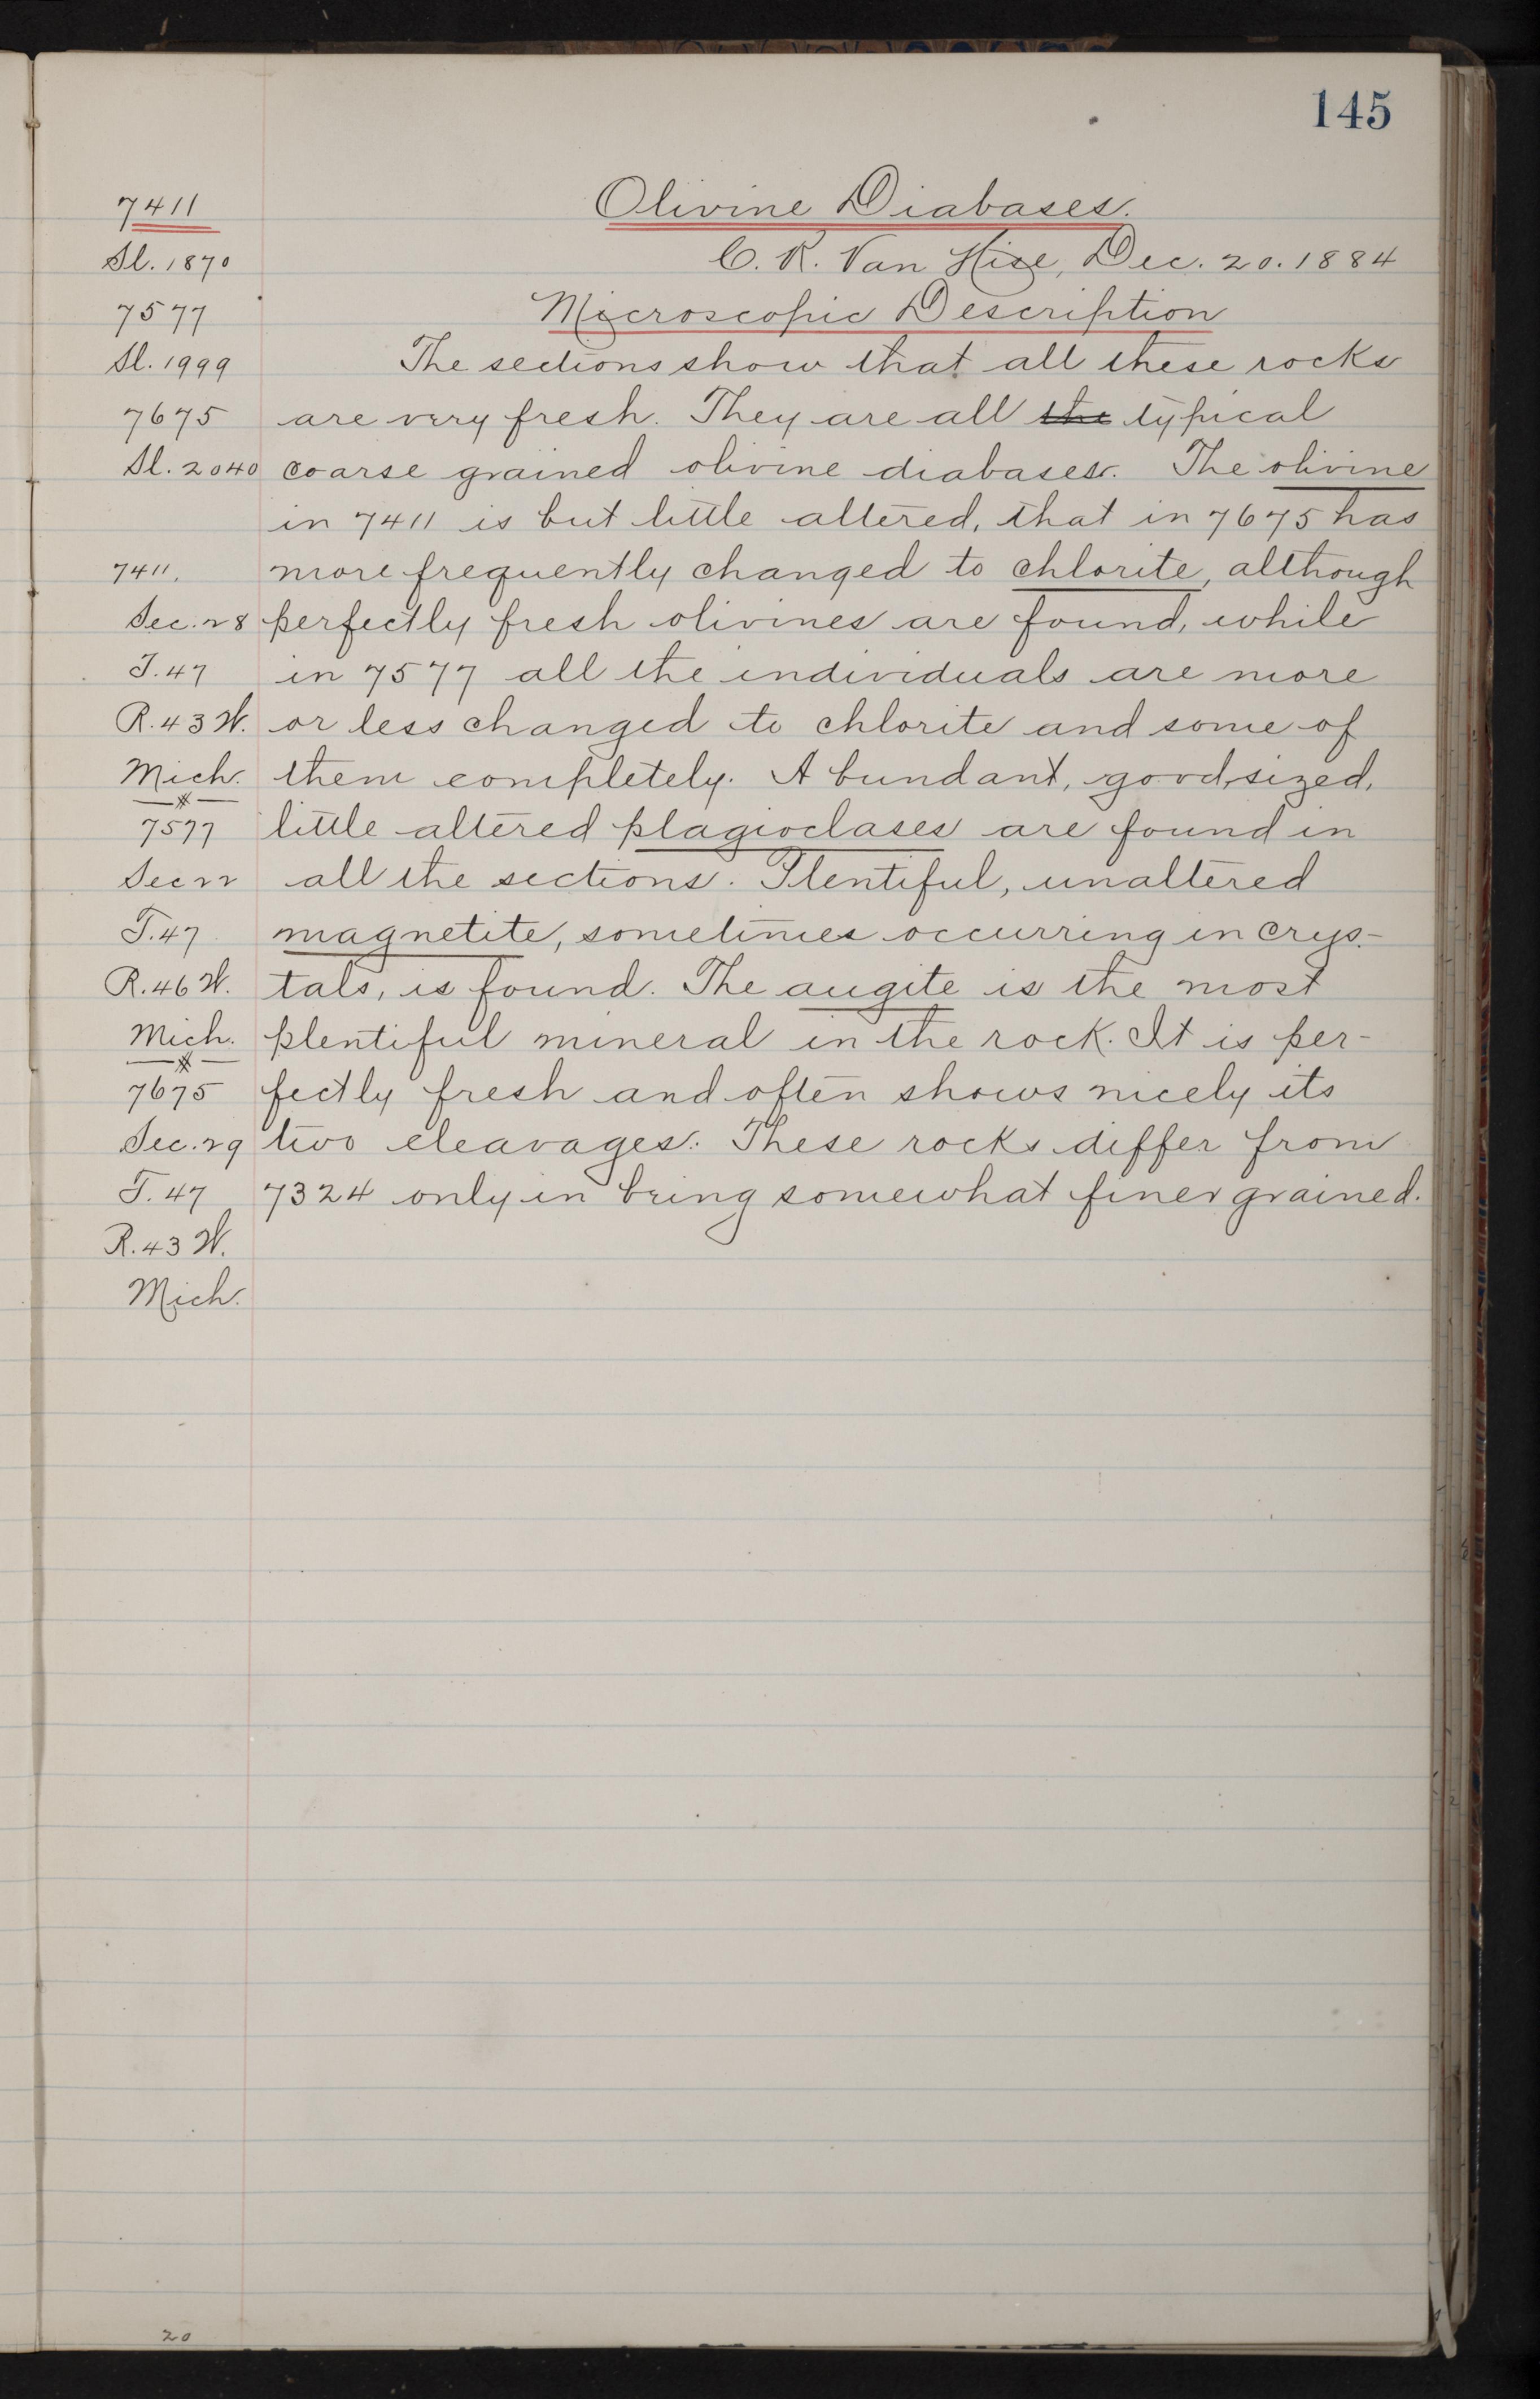 145
7411 Olivine Diabases.
Sl. 1870 C. R. Van Hise, Dec. 20. 1884
7577 Microscopic Description
Sl. 1999 The sections show that all these rocks
7675 are very fresh. They are all the typical
Sl. 2040 coarse grained olivine diabases. The olivine
in 7411 is but little altered, that in 7675 has
7411. more frequently changed to chlorite, although
Sec. 28 perfectly fresh olivines are found, while
T. 47 in 7577 all the individuals are more
R. 43 W. or less changed to chlorite and some of
Mich. them completely. Abundant, good sized,
7577 little altered plagioclases are found in
Sec 22 all the sections. Plentiful, unaltered
T. 47 magnetite, sometimes occurring in crys-
R. 46 W. tals, is found. The augite is the most
Mich. plentiful mineral in the rock. It is per-
7675 fectly fresh and often shows nicely its
Sec. 29 two cleavages. These rocks differ from
T. 47 7324 only in being somewhat finer grained.
R. 43 W.
Mich.
20